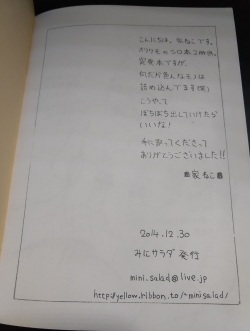 こんにちは。家ねこです。
メタリカの〇日本2冊目。
突発本ですが、
何だか色んなモノは
詰め込んでます(笑)
こうやって
ぼちぼち出していけたら
いいな!
手に取ってくださって
ありがとうございました!!
家ねこ
2014.12.30
みにサラダ 発行
mini.salad@live.jp
http://yellow.ribbon.to/~minisalad/